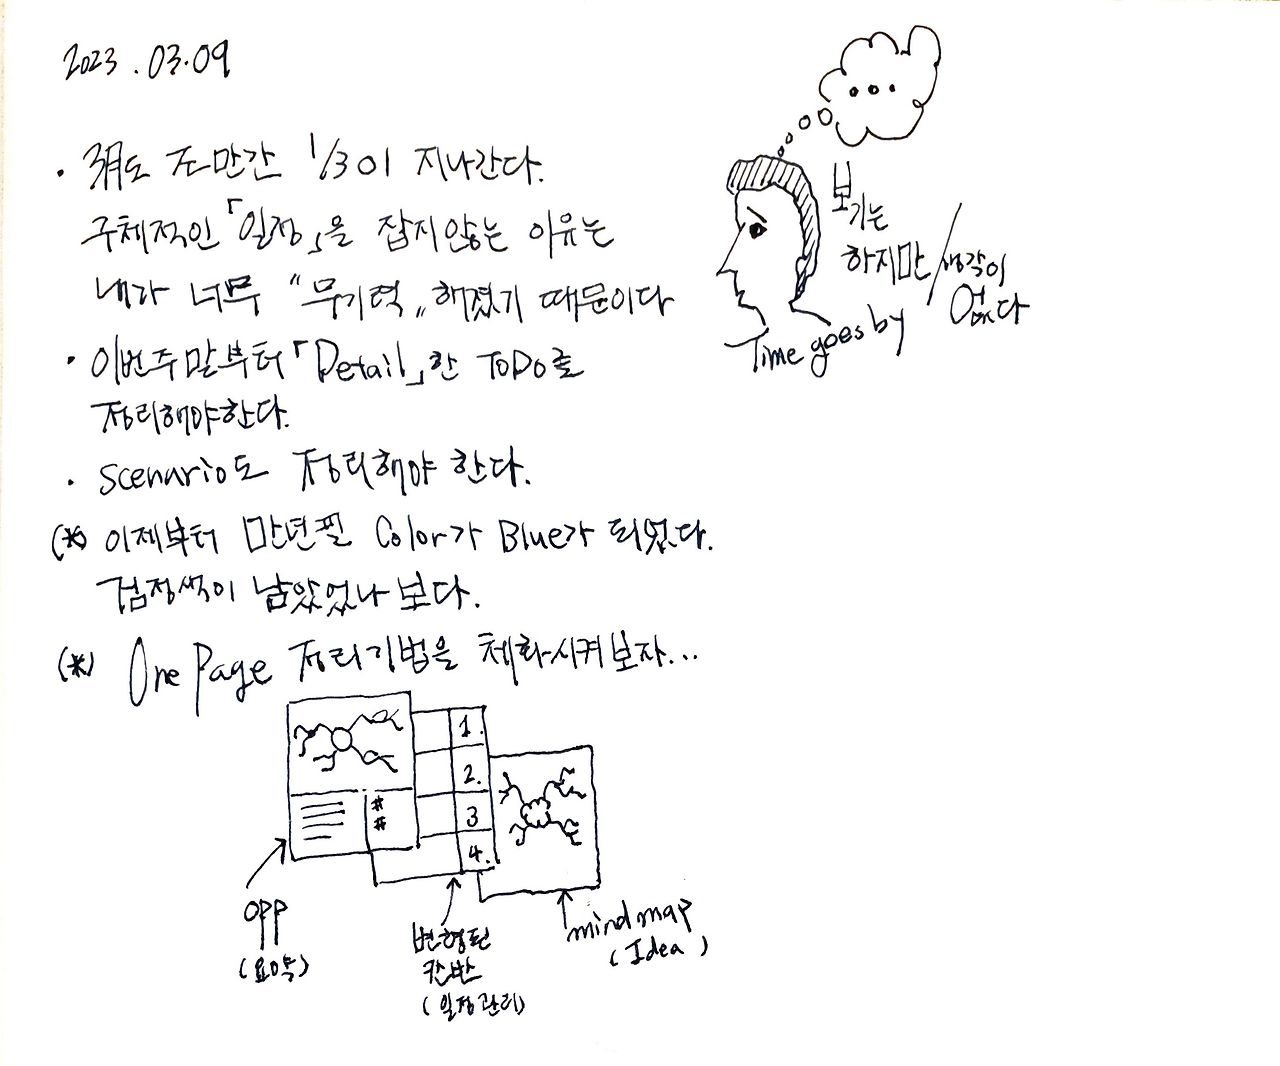 2023.03.09
· 3月도 조만간 1/3이 지나간다.
구체적인 「일정」을 잡지않는 이유는
내가 너무 "무기력"해졌기 때문이다
· 이번주말부터 「Detail」한 ToDo를
정리해야한다.
· Scenario도 정리해야 한다.
(*) 이제부터 만년필 Color가 Blue가 되었다.
검정색이 남았었나 보다.
(*) One Page 정리기법을 체화시켜보자...
...
보기는
하지만/생각이
없다
Time goes by
#
#
1.
2.
3
4.
OPP
(요약)
변형된
칸반
(일정관리)
mind map
(Idea)